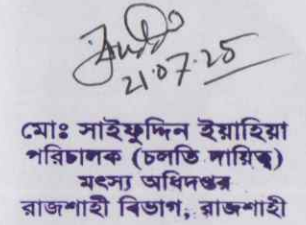 21.07.25
মোঃ সাইফুদ্দিন ইয়াহিয়া
পরিচালক (চলতি দায়িত্ব)
মৎস্য অধিদপ্তর
রাজশাহী বিভাগ, রাজশাহী